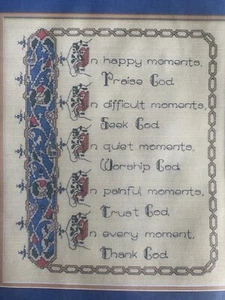 In happy moments,
Praise God.
In difficult moments,
Seek God.
In quiet moments,
Worship God.
In painful moments,
Trust God.
In every moment,
Thank God.